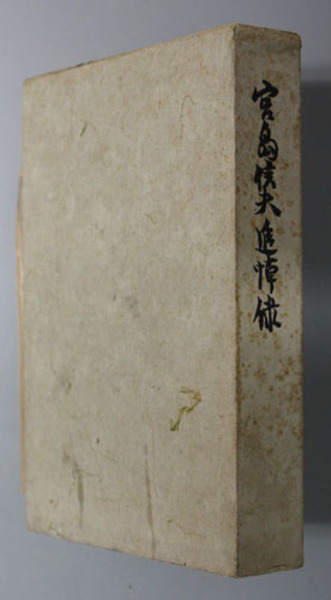 宮島僕夫追悼録